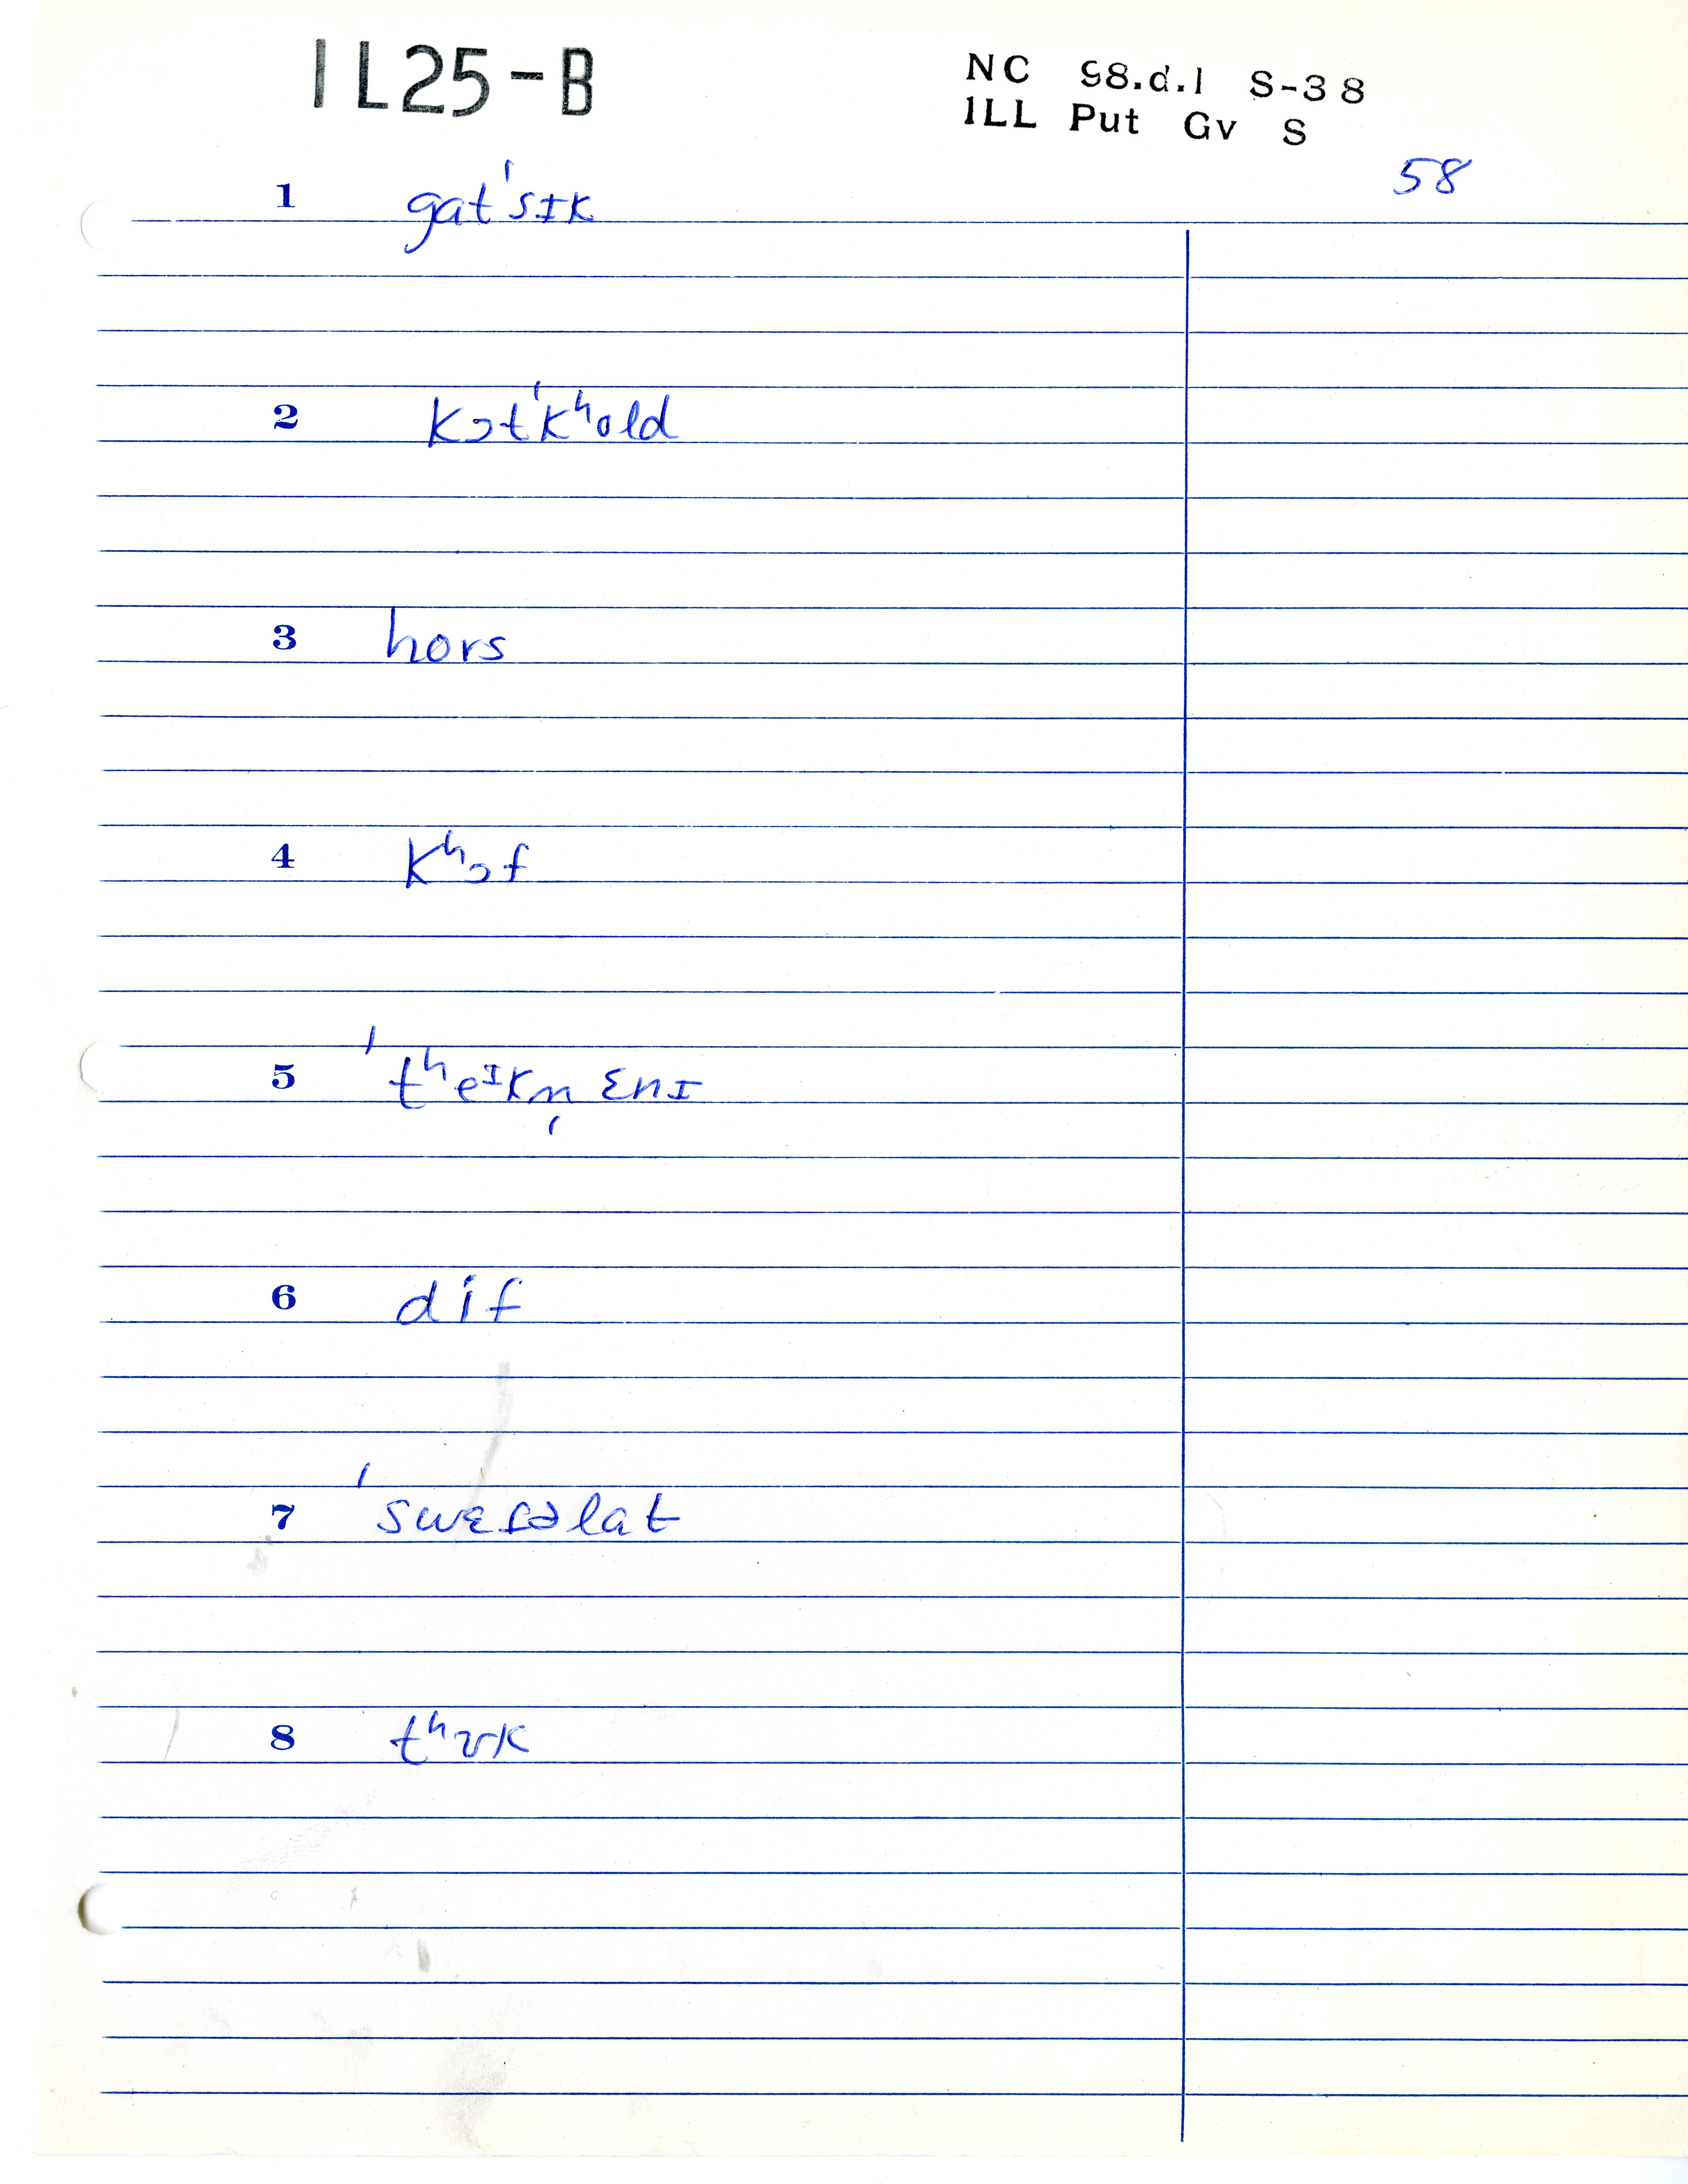 IL25-B
NC 98.d.1 S-38
ILL Put Gv S
58
1 gatˈsɪk
2 kɔtˈkʰold
3 hors
4 kʰɔf
5 ˈtʰeᴵkn̩ ɛnɪ
6 dif
7 ˈswɛɾəlat
8 tʰʊk